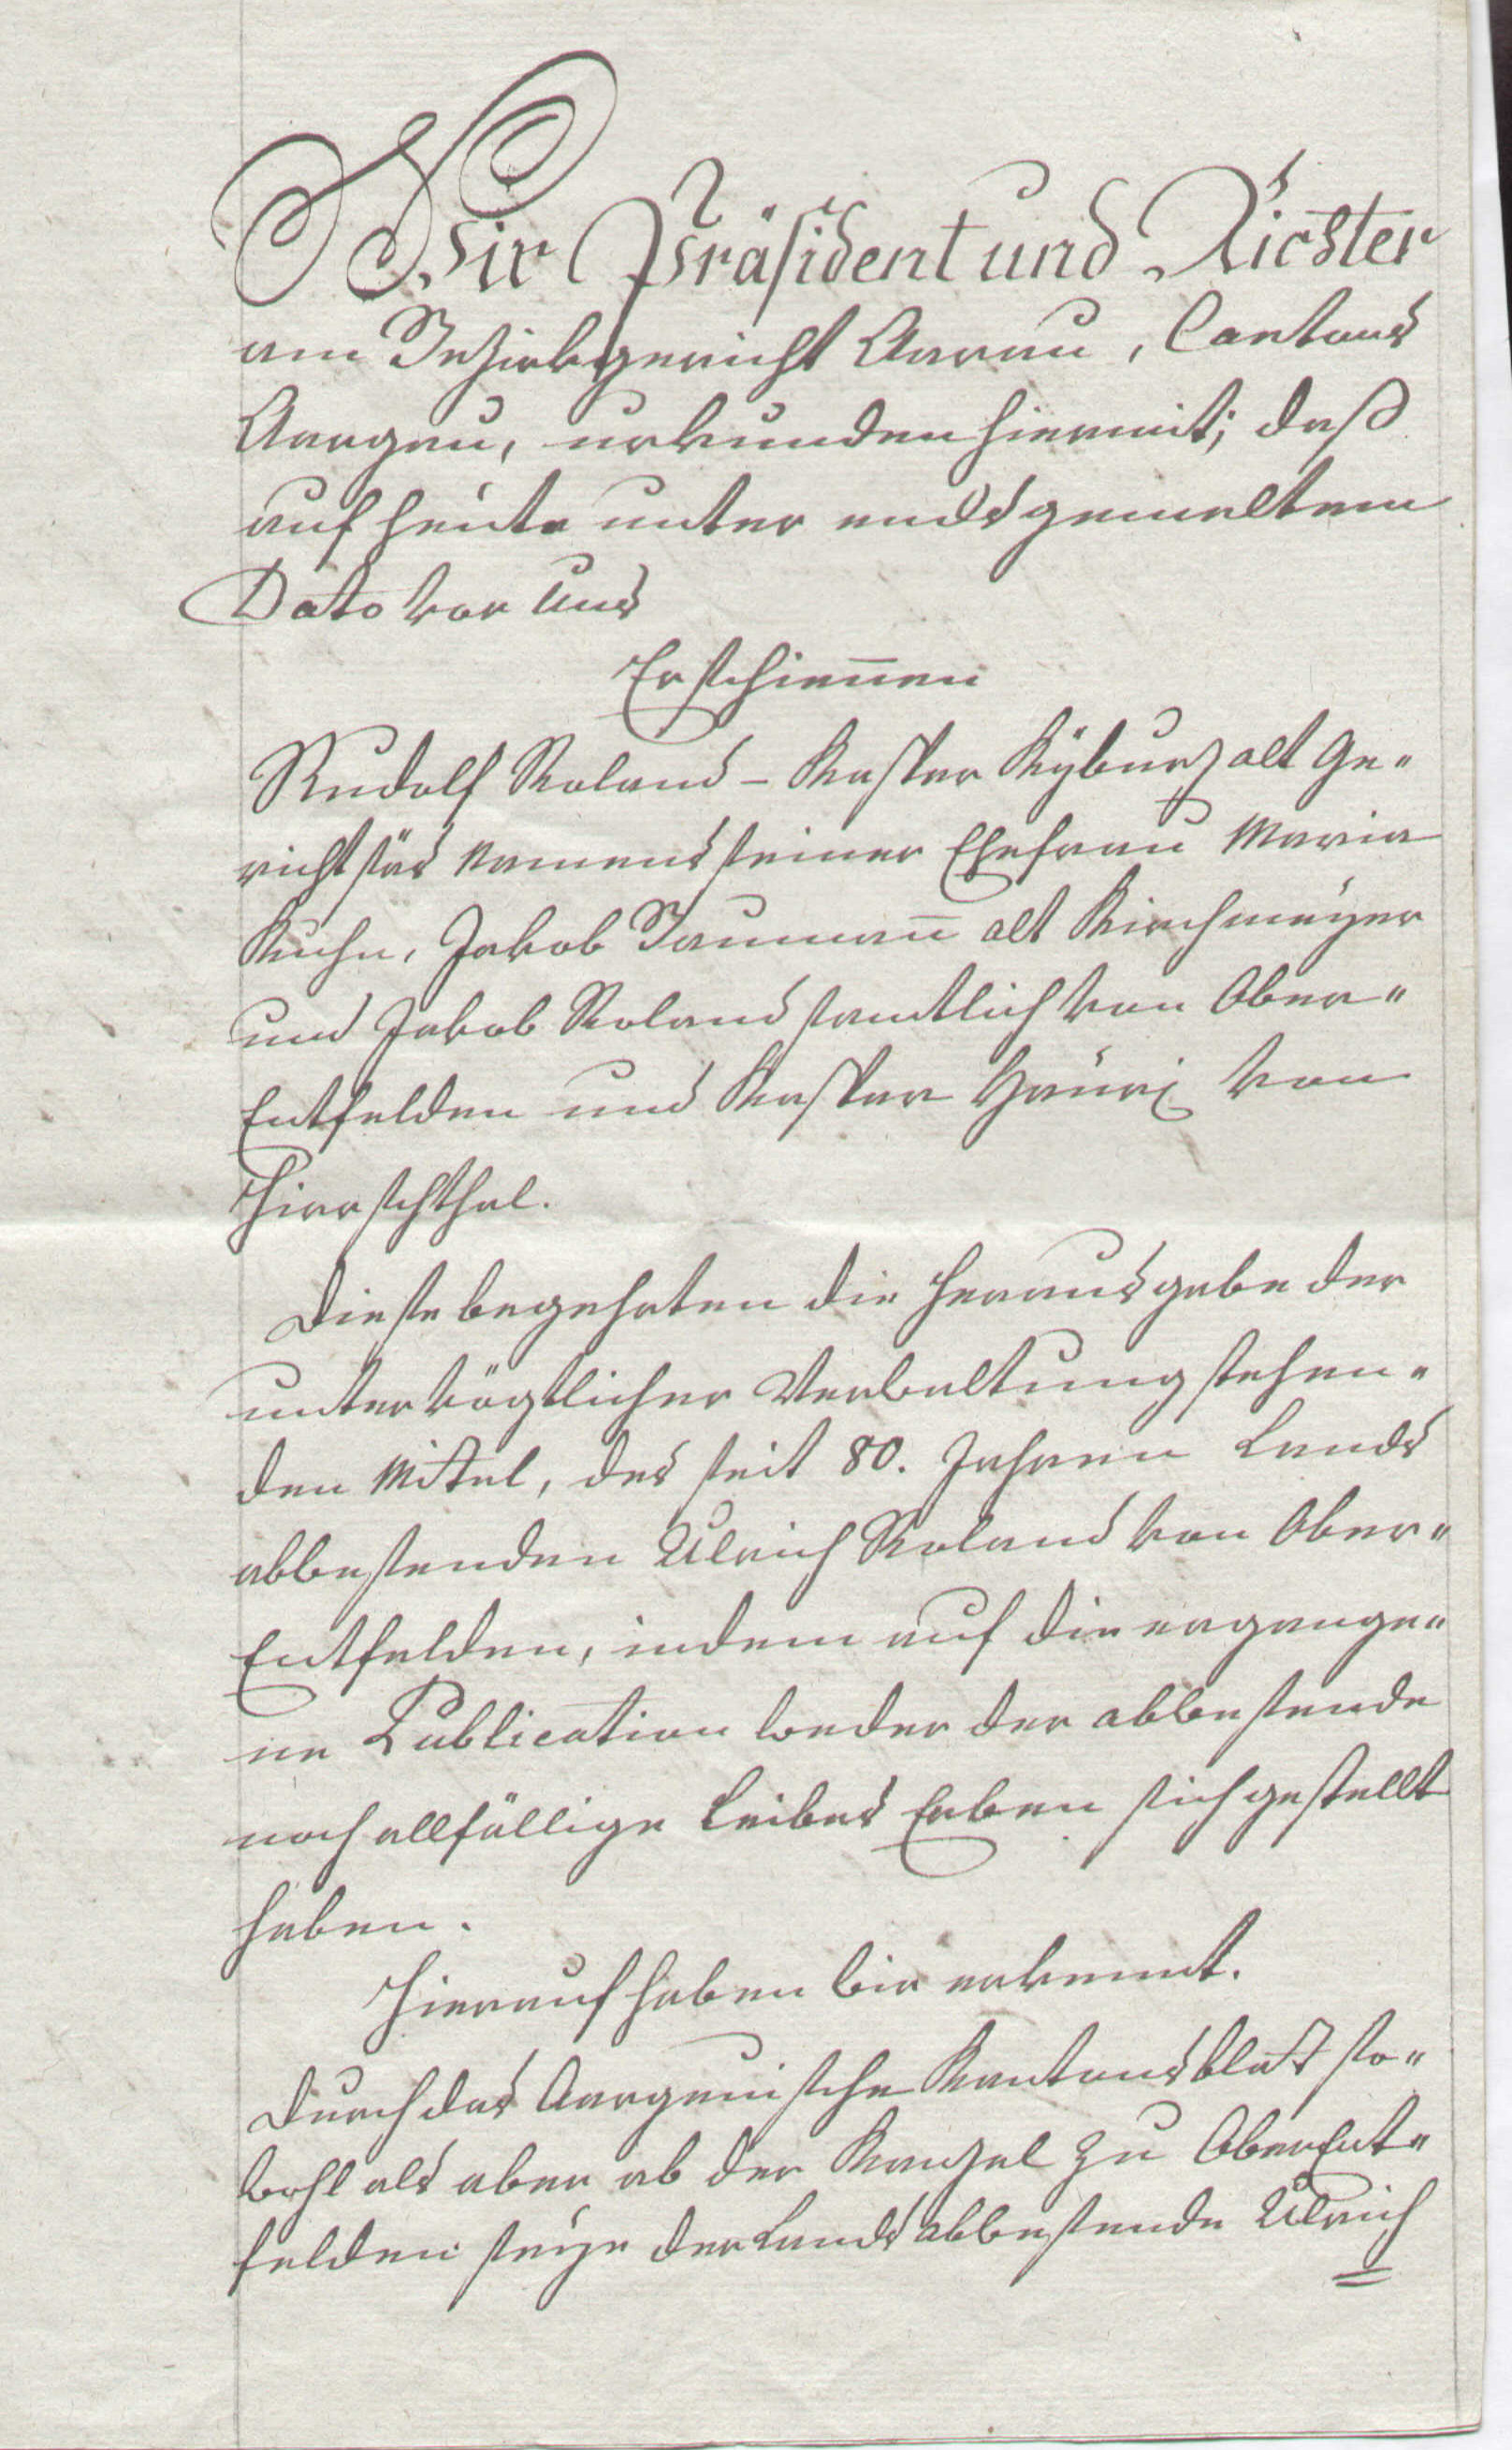 Wir Präsident und Richter
am Bezirksgericht Aarau, Cantons
Aargau, urkunden hiermit; daß
auf heute unter endsgemeltem
Dato vor Uns
Erschienen
Rudolf Roland – Kaspar Kÿburz alt Ge„
richtsäs Namens seiner Ehefrau Maria
Kuhn, Jakob Baumañ alt Kirchmeÿer
und Jakob Roland samtlich von Ober„
Entfelden und Kaspar Häuri von
Hirschthal.
Diese begehrten die Herausgabe der
unter vögtlicher Verwaltung stehen„
den Mittel, des seit 80. Jahren Lands
abwesenden Ulrich Roland von Ober„
Entfelden, indem auf die ergange„
ne Publication weder der abwesende
noch allfällige Leibes Erben sich gestellt
haben.
Hierauf haben wir erkennt.
Durch das Aargauische Kantonsblatt so„
wohl als aber ab der Kanzel zu OberEnt„
felden seÿe der Lands abwesende Ulrich